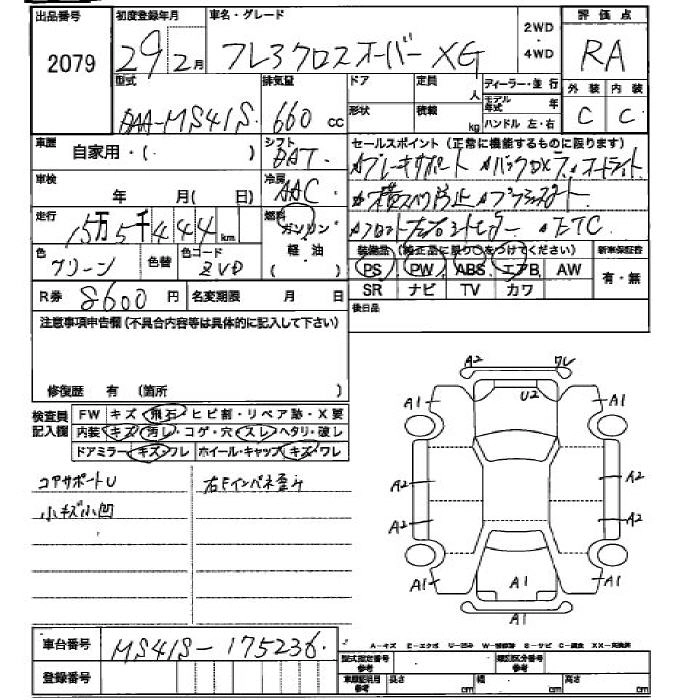 出品番号 初度登録年月 車名・グレード 2WD・4WD 評価点
2079 29年2月 フレアクロスオーバー XG RA
型式 排気量 ドア 定員 人 ディーラー・並行 外装 内装
DAA-MS41S 660cc 形状 積載 kg モデル年式 年 ハンドル 左・右 C C
車歴 自家用・( ) シフト DAT セールスポイント(正常に機能するものに限ります)
ブレーキサポート
車検 年 月( 日) 冷房 AAC 横スベリ防止
走行 15万5千444km 燃料 ガソリン・軽油 ETC
色 グリーン 色替 色コード ZVD 装備品(純正品に限り○をつけてください) 新車保証書
PS PW ABS エアB AW 有・無
R券 8600円 名変期限 月 日 SR ナビ TV カワ
注意事項申告欄(不具合内容等は具体的に記入して下さい) 後日品
修復歴 有 (箇所 )
検査員記入欄 FW キズ・飛石・ヒビ割・リペア跡・X要
内装 キズ・汚レ・コゲ・穴・スレ・ヘタリ・破し
ドアミラー キズ・ワレ ホイール・キャップ キズ・ワレ
コアサポートU 右Fインパネ歪み
小キズ小凹
A2 ワレ
A1 U2 A1
A2 A2
A2 A2
A1 A1 A1
A1
車台番号 MS41S-175236
登録番号
A-キズ E-エクボ U-凹み S-サビ C-腐食
型式指定番号 類別区分番号
車庫証明用参考 長さ cm 幅 cm 高さ cm